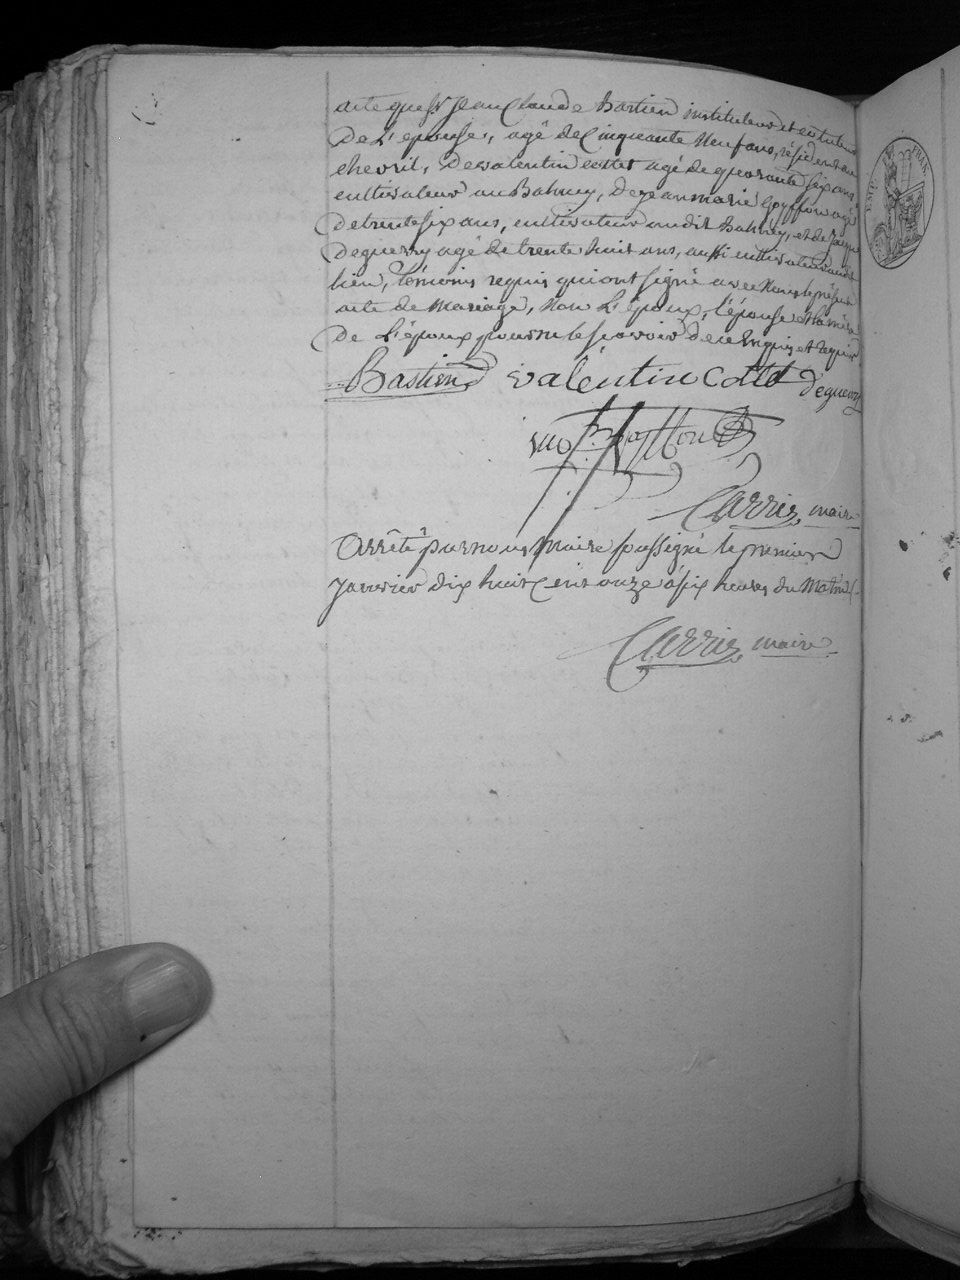 acte que Sr Jean Claude Bastien instituteur et cotuteur
De L'épouse, agé de Cinquante Neuf ans, résident au
chevril, De valentin cottet agé de quarante six ans
cultivateur au Bahney, de jean marie
de trente six ans, cultivateur au dit Bahney, et de
Deguerry agé de trente huit ans, aussi cultivateur audit
lieu, témoins requis qui ont signé avec Nous le présent
acte de Mariage, Non L'époux, l'épouse et la mère
De L'époux pour ne le scavoir de ce Enquis et requis
Bastien valéntin cottet Deguerry
Carrier, maire
Arrêté par nous Maire soussigné le premier
Janvier dix huit Cent onze à six heures du Matin
Carrier, maire
EMP. FRAN.